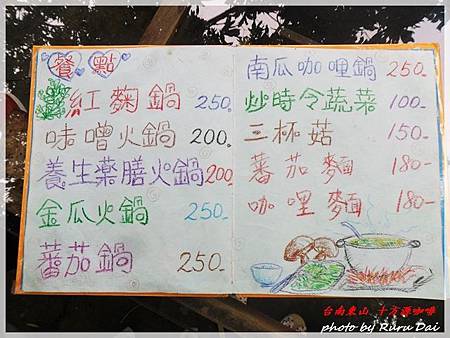 餐點
紅麴鍋 250.
味噌火鍋 200.
養生藥膳火鍋 200
金瓜火鍋 250.
蕃茄鍋 250.
南瓜咖哩鍋 250.
炒時令蔬菜 100-
三杯菇 150-
蕃茄麵 180-
咖哩麵 180-
台南東山 十方源咖啡
photo by Ruru Dai